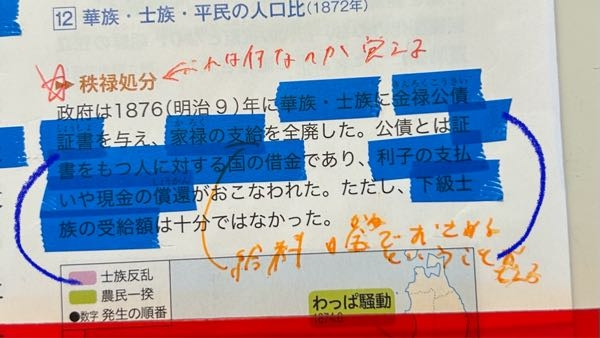 12 華族・士族・平民の人口比(1872年)
秩禄処分
これは何なのか覚える
政府は1876(明治9)年に華族・士族に金禄公債
証書を与え、家禄の支給を全廃した。公債とは証
書をもつ人に対する国の借金であり、利子の支払
いや現金の償還がおこなわれた。ただし、下級士
族の受給額は十分ではなかった。
きんろくこうさい
しょうしょ
かろく
しょうかん
給料
ということ
士族反乱
農民一揆
●数字 発生の順番
わっぱ騒動